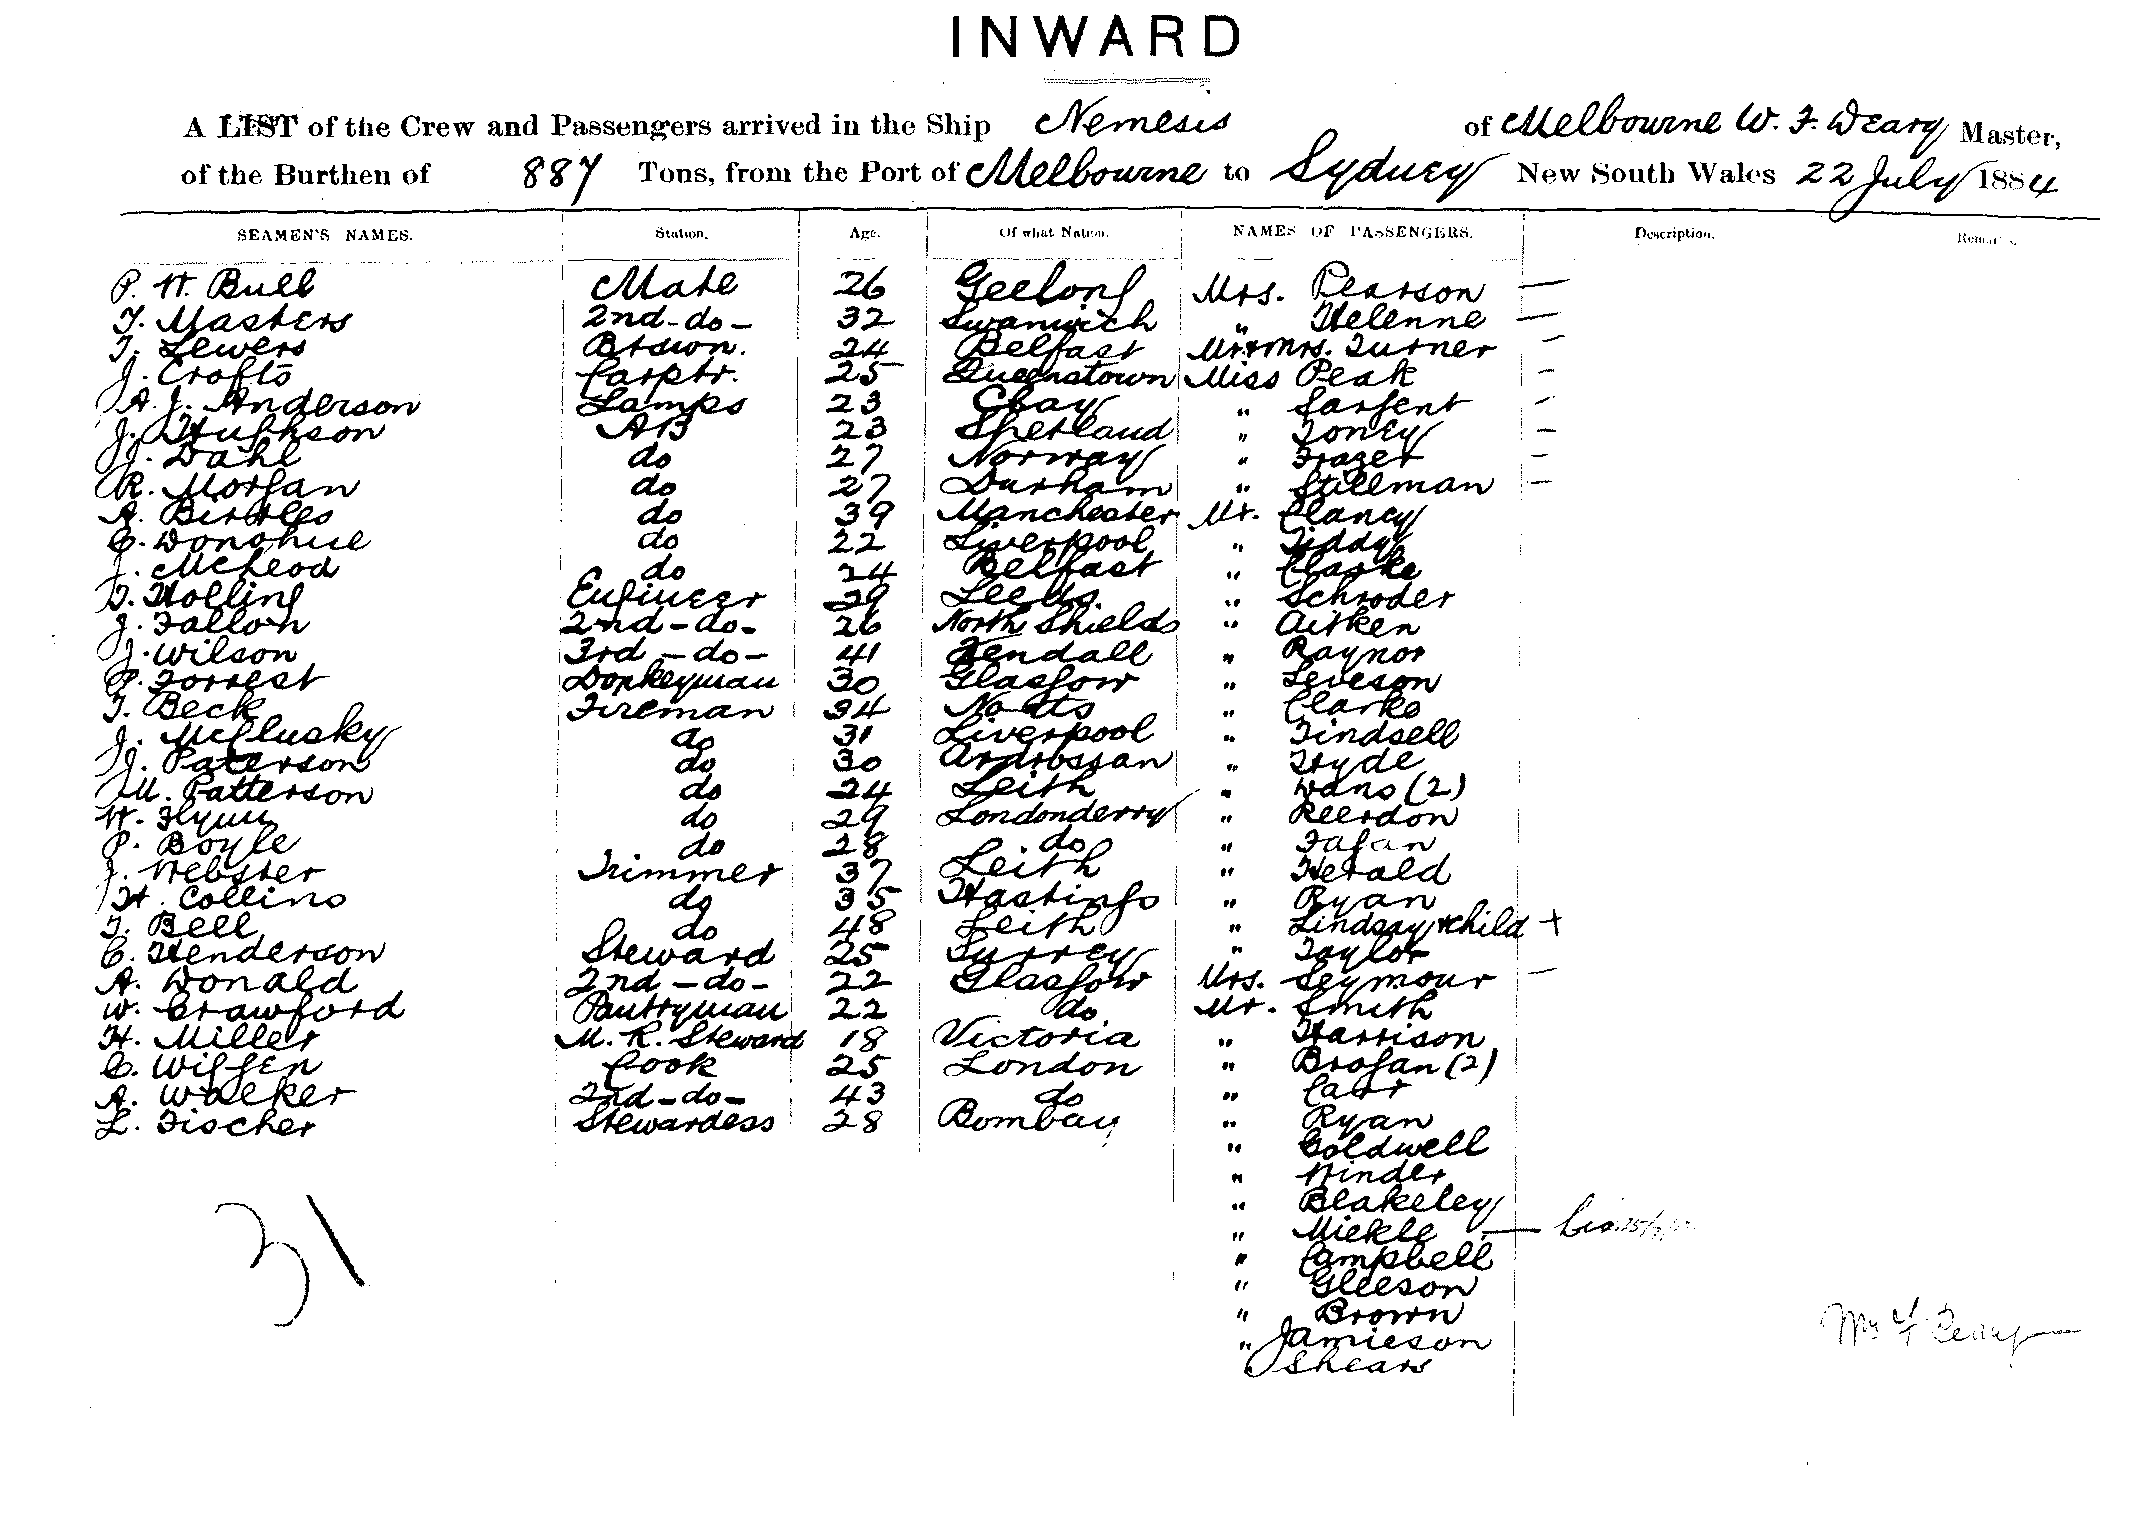 INWARD
A LIST of the Crew and Passengers arrived in the Ship Nemesis of Melbourne W. F. Deary Master,
of the Burthen of 887 Tons, from the Port of Melbourne to Sydney New South Wales 22 July 1884
SEAMEN'S NAMES. Station. Age. Of what Nation. NAMES OF PASSENGERS. Description. Remarks.
P. H. Bull Mate 26 Geelong Mrs. Pearson —
T. Masters 2nd-do- 32 Swanwich " Helenne —
T. Lewers Btswn. 24 Belfast Mr & Mrs. Turner —
J. Crofts Carptr. 25 Queenstown Miss Peak —
A. J. Anderson Lamps 23 " Sargent —
J. Hughson AB 23 Shetland " Toney —
J. Dahl do 27 Norway " Frazer —
R. Morgan do 27 Durham " Stillman —
A. Birtles do 39 Manchester Mr. Clancy
C. Donohue do 22 Liverpool " Tiddy
J. McLeod do 24 Belfast " Clarke
D. Holling Engineer 39 Leeds. " Schroder
J. Fallon 2nd-do- 26 North Shields " Aitken
J. Wilson 3rd-do- 41 Kendall " Raynor
P. Forrest Donkeyman 30 Glasgow " Leveson
T. Beck Fireman 34 Notts " Clarke
J. McClusky do 31 Liverpool " Tindsell
J. Paterson do 30 Ardrossan " Hyde
M. Patterson do 24 Leith " Wans (2)
H. Flynn do 29 Londonderry " Reerdon
P. Boyle do 28 do " Fagan
J. Webster Trimmer 37 Leith " Herald
H. Collins do 35 Hastings " Ryan
T. Bell do 48 Leith " Lindsay & child +
C. Henderson Steward 25 Surrey " Taylor
A. Donald 2nd-do- 22 Glasgow Mrs. Seymour —
W. Crawford Pantryman 22 do Mr. Smith
H. Miller M. R. Steward 18 Victoria " Harrison
C. Wiffen Cook 25 London " Brogan (2)
A. Walker 2nd-do- 43 do " Carr
L. Fischer Stewardess 28 Bombay " Ryan
" Coldwell
" Winder
" Blakeley
31 " Miekle —
" Campbell
" Gleeson
" Brown
" Jamieson
Shears